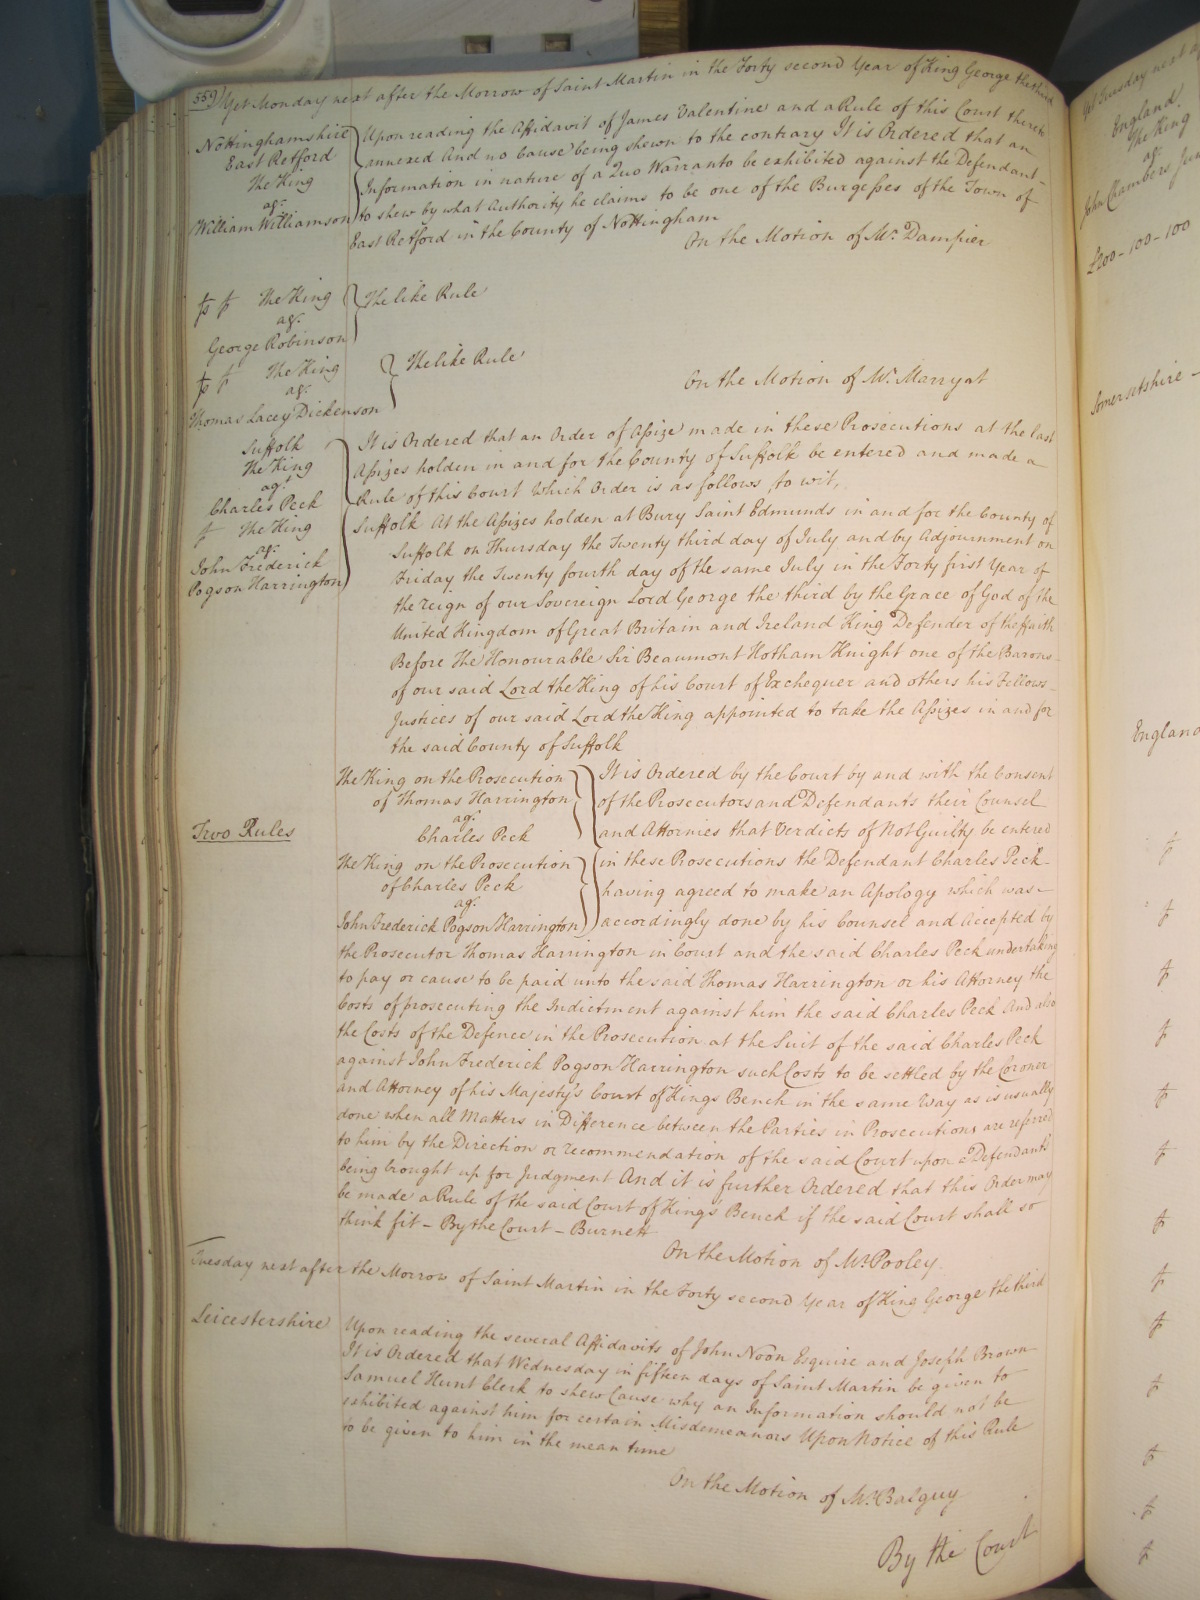 559 Yet Monday next after the Morrow of Saint Martin in the Forty second Year of King George the third
Nottinghamshire
East Retford
The King
agt.
William Williamson
Upon reading the Affidavit of James Valentine and a Rule of this Court thereto
annexed And no Cause being shewn to the contrary It is Ordered that an
Information in nature of a Quo Warranto be exhibited against the Defendant
to shew by what Authority he claims to be one of the Burgesses of the Town of
East Retford in the County of Nottingham
On the Motion of Mr. Dampier
The King
agt.
George Robinson
The like Rule
The King
agt.
Thomas Lacey Dickenson
The like Rule
On the Motion of Mr. Marryat
Suffolk
The King
agt.
Charles Peck
The King
agt.
John Frederick
Pogson Harrington
It is Ordered that an Order of Assize made in these Prosecutions at the last
Assizes holden in and for the County of Suffolk be entered and made a
Rule of this Court Which Order is as follows, to wit,
Suffolk At the Assizes holden at Bury Saint Edmunds in and for the County of
Suffolk on Thursday the Twenty third day of July and by Adjournment on
Friday the Twenty fourth day of the same July in the Forty first Year of
the reign of our Sovereign Lord George the third by the Grace of God of the
United Kingdom of Great Britain and Ireland King Defender of the Faith
Before The Honourable Sir Beaumont Hotham Knight one of the Barons
of our said Lord the King of his Court of Exchequer and others his Fellows
Justices of our said Lord the King appointed to take the Assizes in and for
the said County of Suffolk
Two Rules
The King on the Prosecution
of Thomas Harrington
agt.
Charles Peck
The King on the Prosecution
of Charles Peck
agt.
John Frederick Pogson Harrington
It is Ordered by the Court by and with the Consent
of the Prosecutors and Defendants their Counsel
and Attornies that Verdicts of Not Guilty be entered
in these Prosecutions the Defendant Charles Peck
having agreed to make an Apology which was
accordingly done by his Counsel and Accepted by
the Prosecutor Thomas Harrington in Court and the said Charles Peck undertaking
to pay or cause to be paid unto the said Thomas Harrington or his Attorney the
Costs of prosecuting the Indictment against him the said Charles Peck And also
the Costs of the Defence in the Prosecution at the Suit of the said Charles Peck
against John Frederick Pogson Harrington such Costs to be settled by the Coroner
and Attorney of his Majesty's Court of Kings Bench in the same Way as is usually
done when all Matters in Difference between the Parties in Prosecutions are referred
to him by the Direction or recommendation of the said Court upon a Defendants
being brought up for Judgment And it is further Ordered that this Order may
be made a Rule of the said Court of Kings Bench if the said Court shall so
think fit – By the Court – Burnett
On the Motion of Mr. Pooley.
Tuesday next after the Morrow of Saint Martin in the Forty second Year of King George the third
Leicestershire
Upon reading the several Affidavits of John Noon Esquire and Joseph Brown
It is Ordered that Wednesday in fifteen days of Saint Martin be given to
Samuel Hunt Clerk to shew Cause why an Information should not be
exhibited against him for certain Misdemeanors Upon Notice of this Rule
to be given to him in the mean time
On the Motion of Mr. Balguy
By the Court
Yet Tuesday next
England
The King
agt.
John Chambers
£200 – 100 – 100
Somersetshire –
England